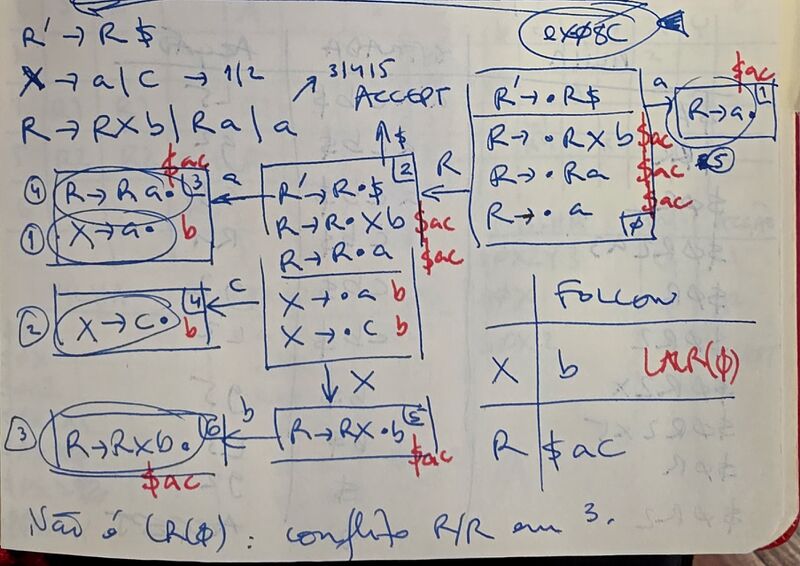 exφ8C
R' → R $
X → a | c → 1/2
↗ 3/4/5
R → RXb | Ra | a
ACCEPT
↑ $
R' → • R $
R → • R X b $ac
R → • Ra $ac
R → • a $ac
φ
a →
R → a • $ac
1
5
R ←
R' → R • $
R → R • X b $ac
R → R • a $ac
X → • a b
X → • c b
2
a ←
4 R → R a • $ac
1 X → a • b
3
c ←
2 X → c • b
4
↓ X
R → RX • b $ac
5
b ←
3 R → RXb • $ac
6
FOLLOW
X b
R $ ac
LALR(φ)
Não é LR(φ): conflito R/R em 3.